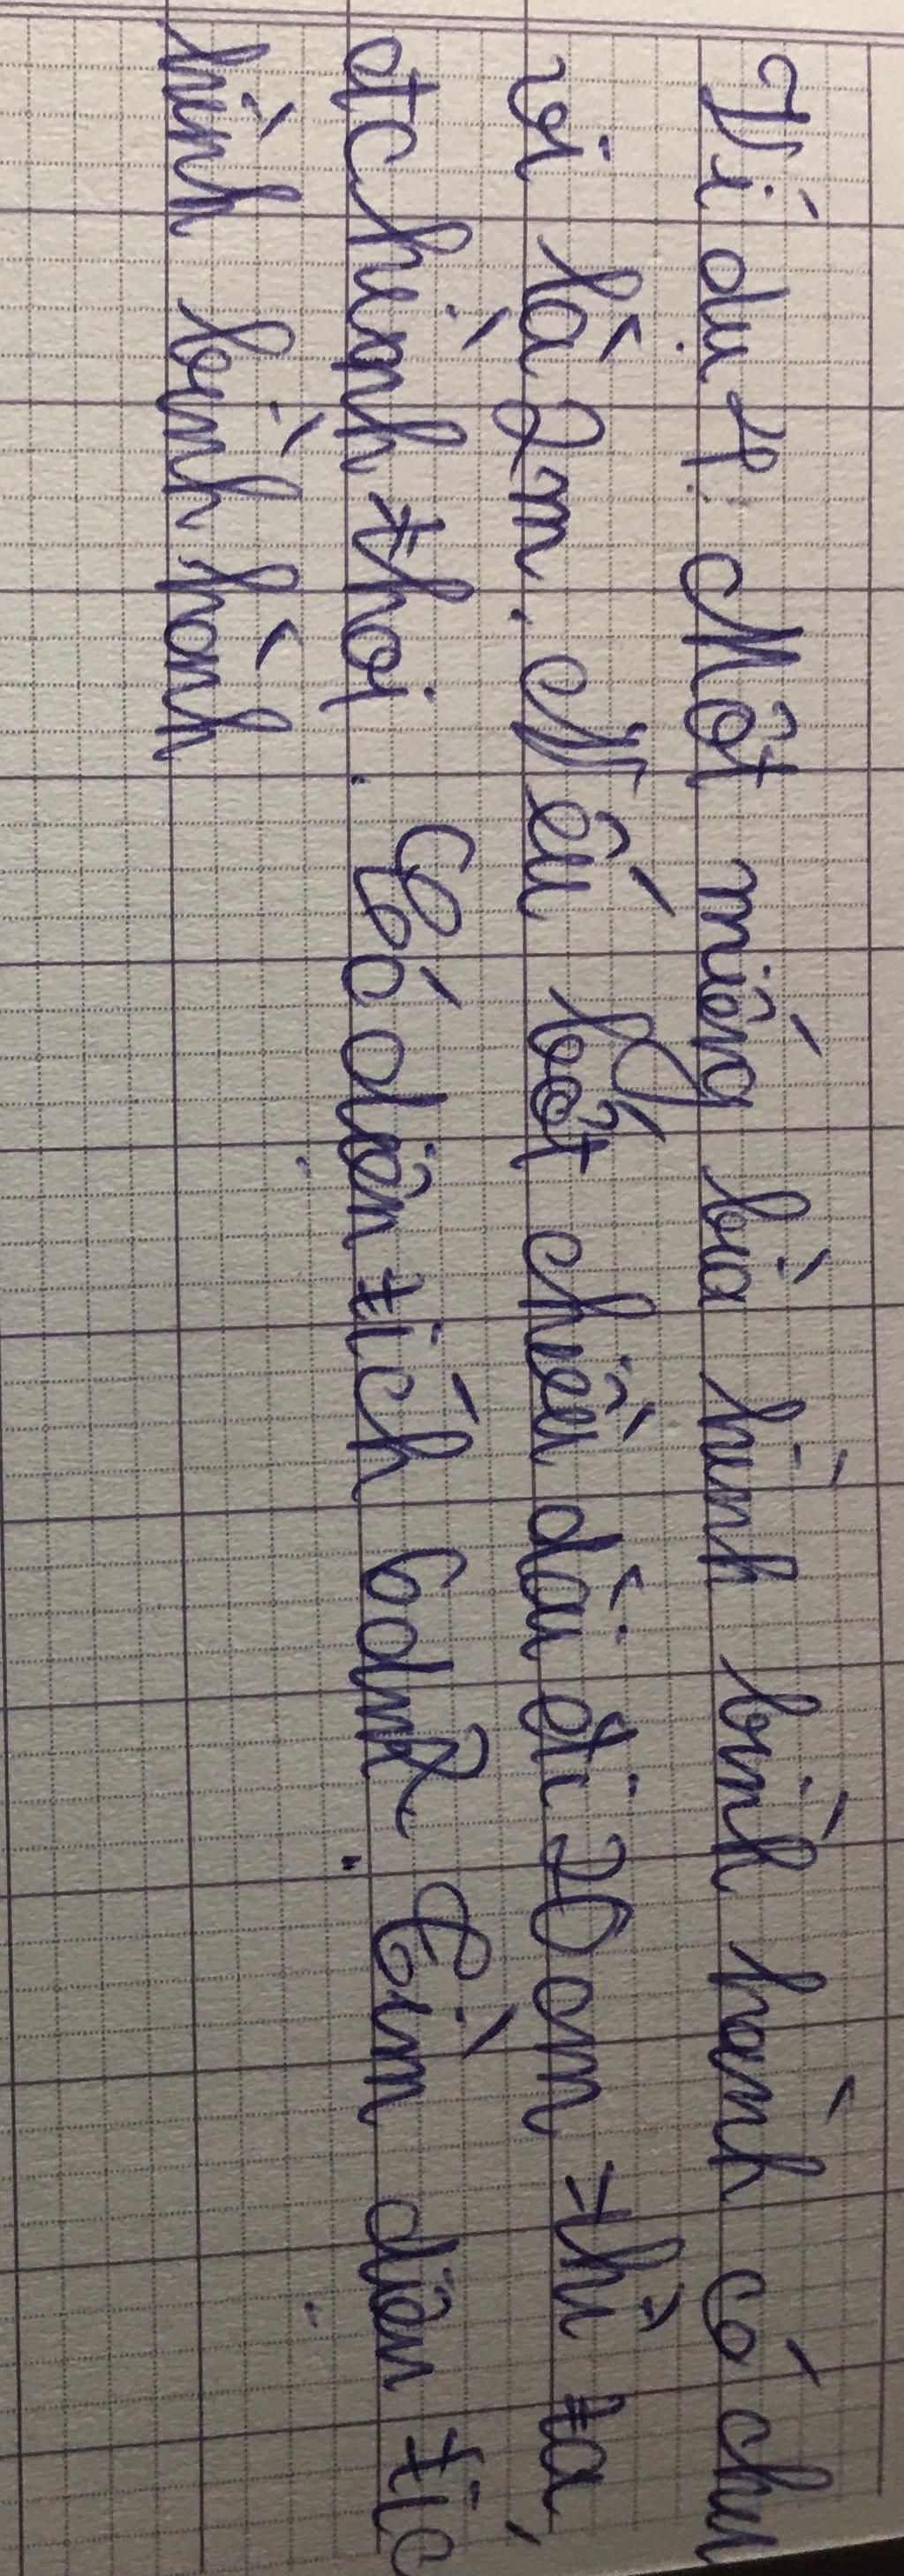 Ví dụ 4: Một miếng bìa hình bình hành có chu
vi là 2m. Nếu bớt chiều dài đi 20cm thì ta,
đc hình thoi. Có diện tích 6dm2. Tìm diện tíc
hình bình hành